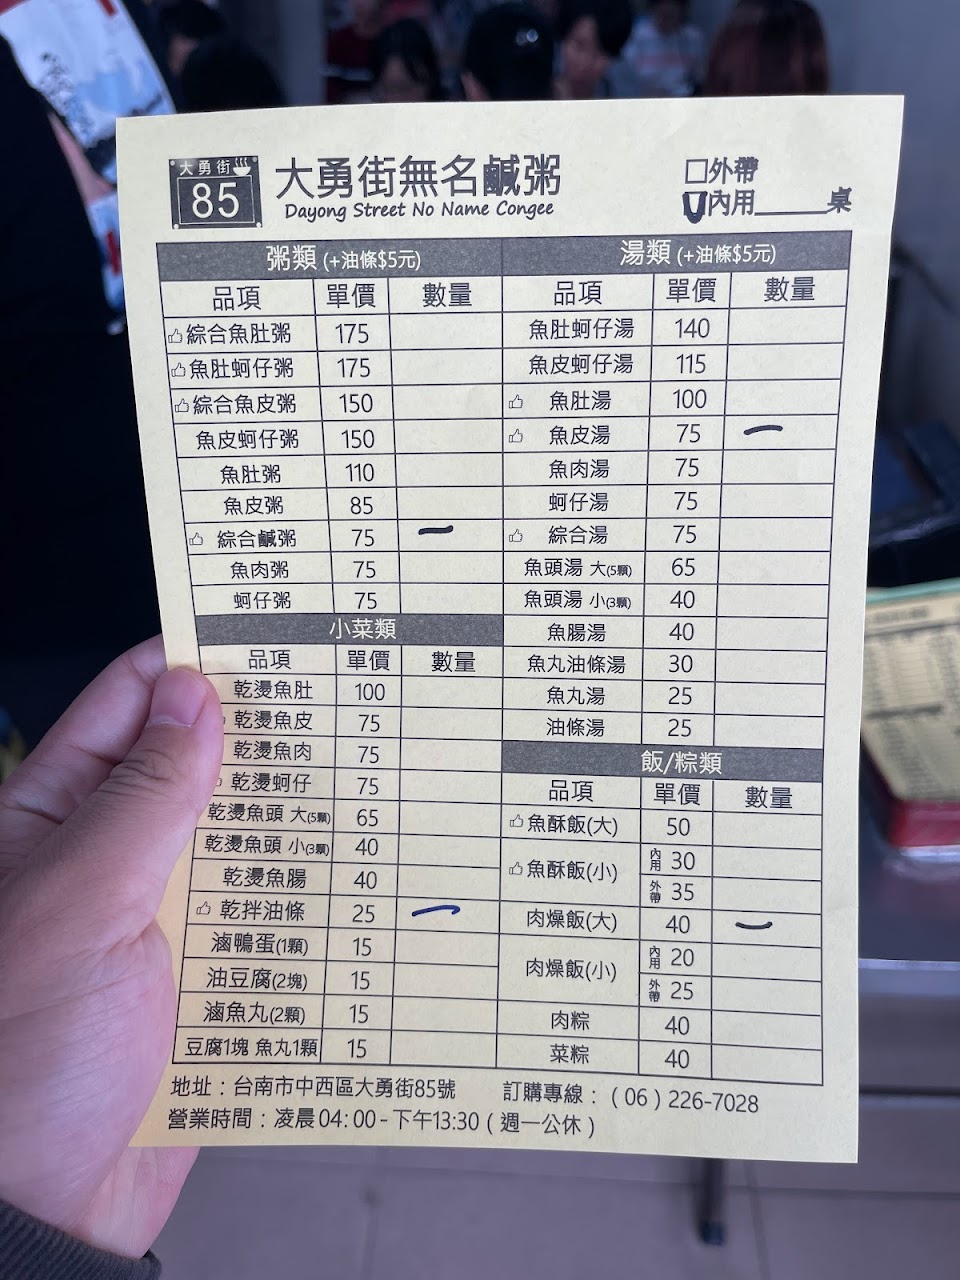 大勇街
85
大勇街無名鹹粥
Dayong Street No Name Congee
□外帶
□內用______桌
粥類 (+油條$5元)
品項 單價 數量
綜合魚肚粥 175
魚肚蚵仔粥 175
綜合魚皮粥 150
魚皮蚵仔粥 150
魚肚粥 110
魚皮粥 85
綜合鹹粥 75 一
魚肉粥 75
蚵仔粥 75
小菜類
品項 單價 數量
乾燙魚肚 100
乾燙魚皮 75
乾燙魚肉 75
乾燙蚵仔 75
乾燙魚頭 大(5顆) 65
乾燙魚頭 小(3顆) 40
乾燙魚腸 40
乾拌油條 25 一
滷鴨蛋(1顆) 15
油豆腐(2塊) 15
滷魚丸(2顆) 15
豆腐1塊 魚丸1顆 15
湯類 (+油條$5元)
品項 單價 數量
魚肚蚵仔湯 140
魚皮蚵仔湯 115
魚肚湯 100
魚皮湯 75 一
魚肉湯 75
蚵仔湯 75
綜合湯 75
魚頭湯 大(5顆) 65
魚頭湯 小(3顆) 40
魚腸湯 40
魚丸油條湯 30
魚丸湯 25
油條湯 25
飯/粽類
品項 單價 數量
魚酥飯(大) 50
魚酥飯(小) 內用 30
外帶 35
肉燥飯(大) 40 一
肉燥飯(小) 內用 20
外帶 25
肉粽 40
菜粽 40
地址：台南市中西區大勇街85號 訂購專線：(06)226-7028
營業時間：凌晨04:00-下午13:30(週一公休)